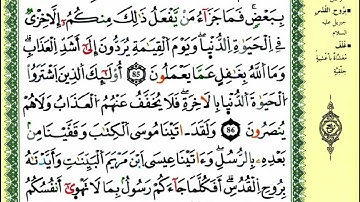 بِبَعْضٍ فَمَا جَزَآءُ مَنْ يَّفْعَلُ ذَٰلِكَ مِنكُمُۥٓ إِلَّا خِزْىٌ
فِے الْحَيَوٰةِ الدُّنْيَا وَيَوْمَ الْقِيَٰمَةِ يُرَدُّونَ إِلَىٰٓ أَشَدِّ الْعَذَابِ
وَمَا اللَّهُ بِغَٰفِلٍ عَمَّا يَعْمَلُونَ 85 أُوْلَٰٓئِكَ الَّذِينَ اَشْتَرَوُاْ
الْحَيَوٰةَ الدُّنْيَا بِالَاخِرَةِ فَلَا يُخَفَّفُ عَنْهُمُ الْعَذَابُ وَلَا هُمْ
يُنصَرُونَ 86 وَلَقَدَ اٰتَيْنَا مُوسَى الْكِتَٰبَ وَقَفَّيْنَا مِنۢ
بَعْدِهِۦ بِالرُّسُلِ وَءَاتَيْنَا عِيسَى اَبْنَ مَرْيَمَ الْبَيِّنَٰتِ وَأَيَّدْنَٰهُ
بِرُوحِ الْقُدُسِ أَفَكُلَّمَا جَآءَكُمْ رَسُولٌۢ بِمَا لَا تَهْوَىٰٓ أَنفُسُكُمُ
بِرُوحِ الْقُدُسِ
جبريل عليه
السلام